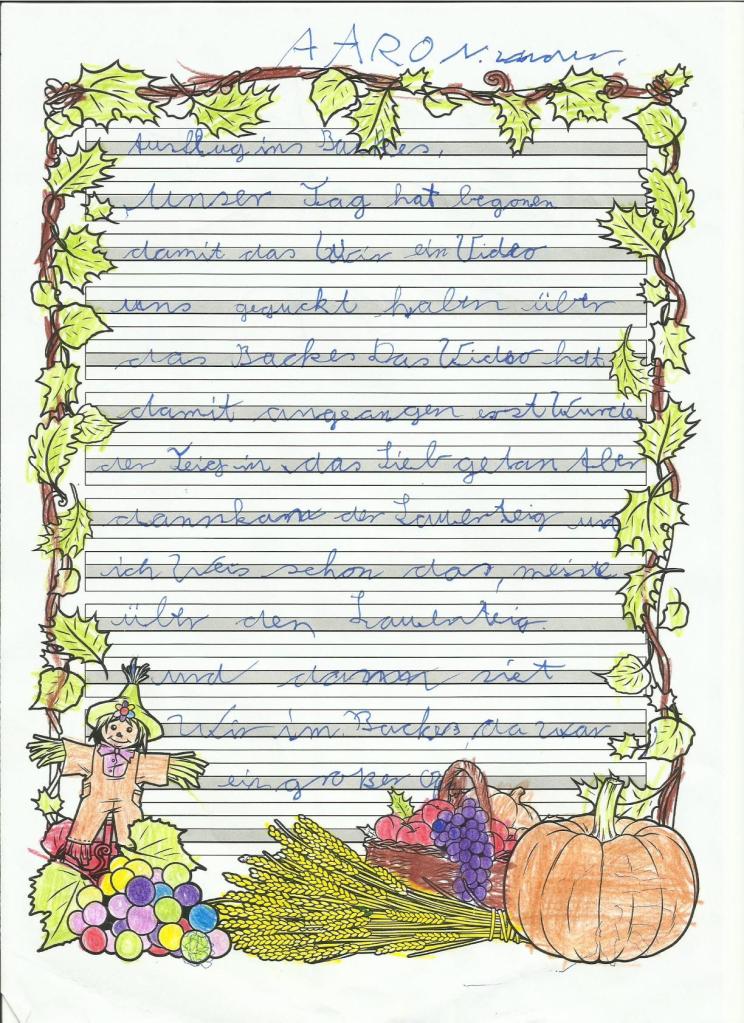 AARON
Ausflug ins Backes,
Unser Tag hat begonen
damit das Wir ein Video
uns geguckt haben über
das Backes Das Video hat
damit angeangen erst Wurde
der Teig in das Sieb getan Aber
dann kam der Sauerteig und
ich Weis schon das meiste
über den Sauerteig.
und dann siet
Wir im Backes, da war
ein großer